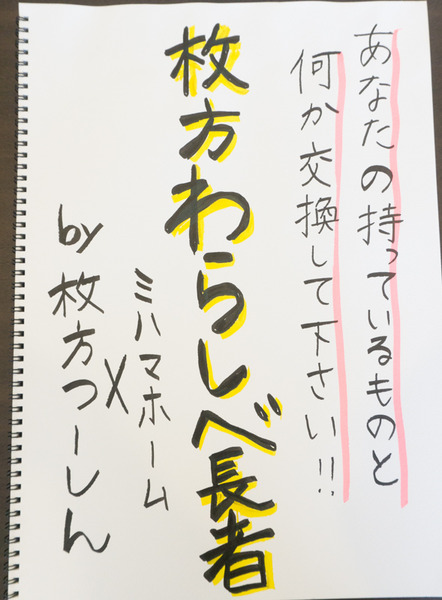 あなたの持っているものと
何か交換して下さい!!
枚方わらしべ長者
ミハマホーム
×
by 枚方つーしん